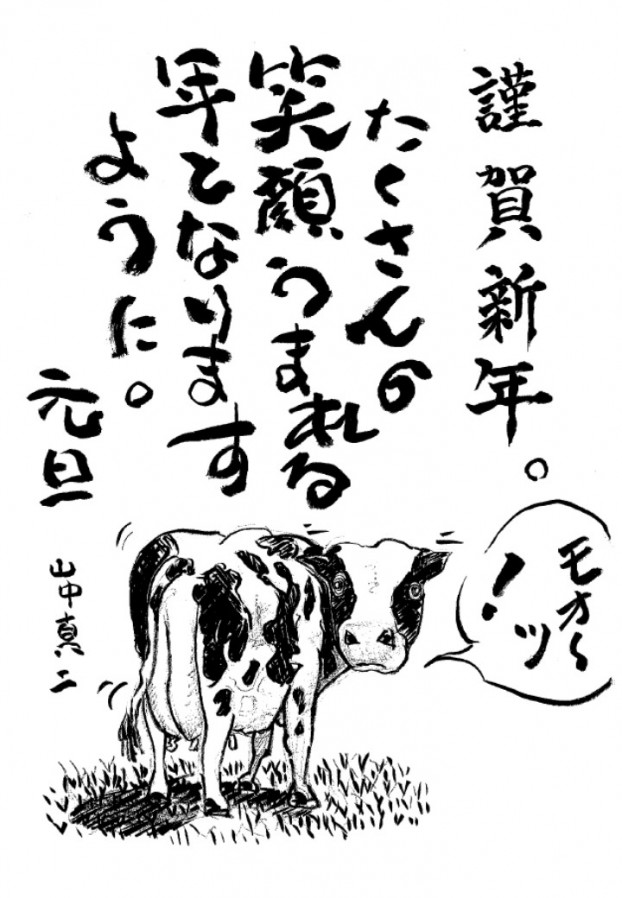 謹賀新年。
たくさんの
笑顔うまれる
年となります
ように。
元旦
山中真二
モオ〜
ッ!